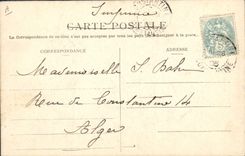 Imprimé
CARTE POSTALE
La Correspondance au recto n'est pas acceptée par tous les pays
CORRESPONDANCE
ADRESSE
Mademoiselle S. Bah
Rue de Constantine 14
Alger